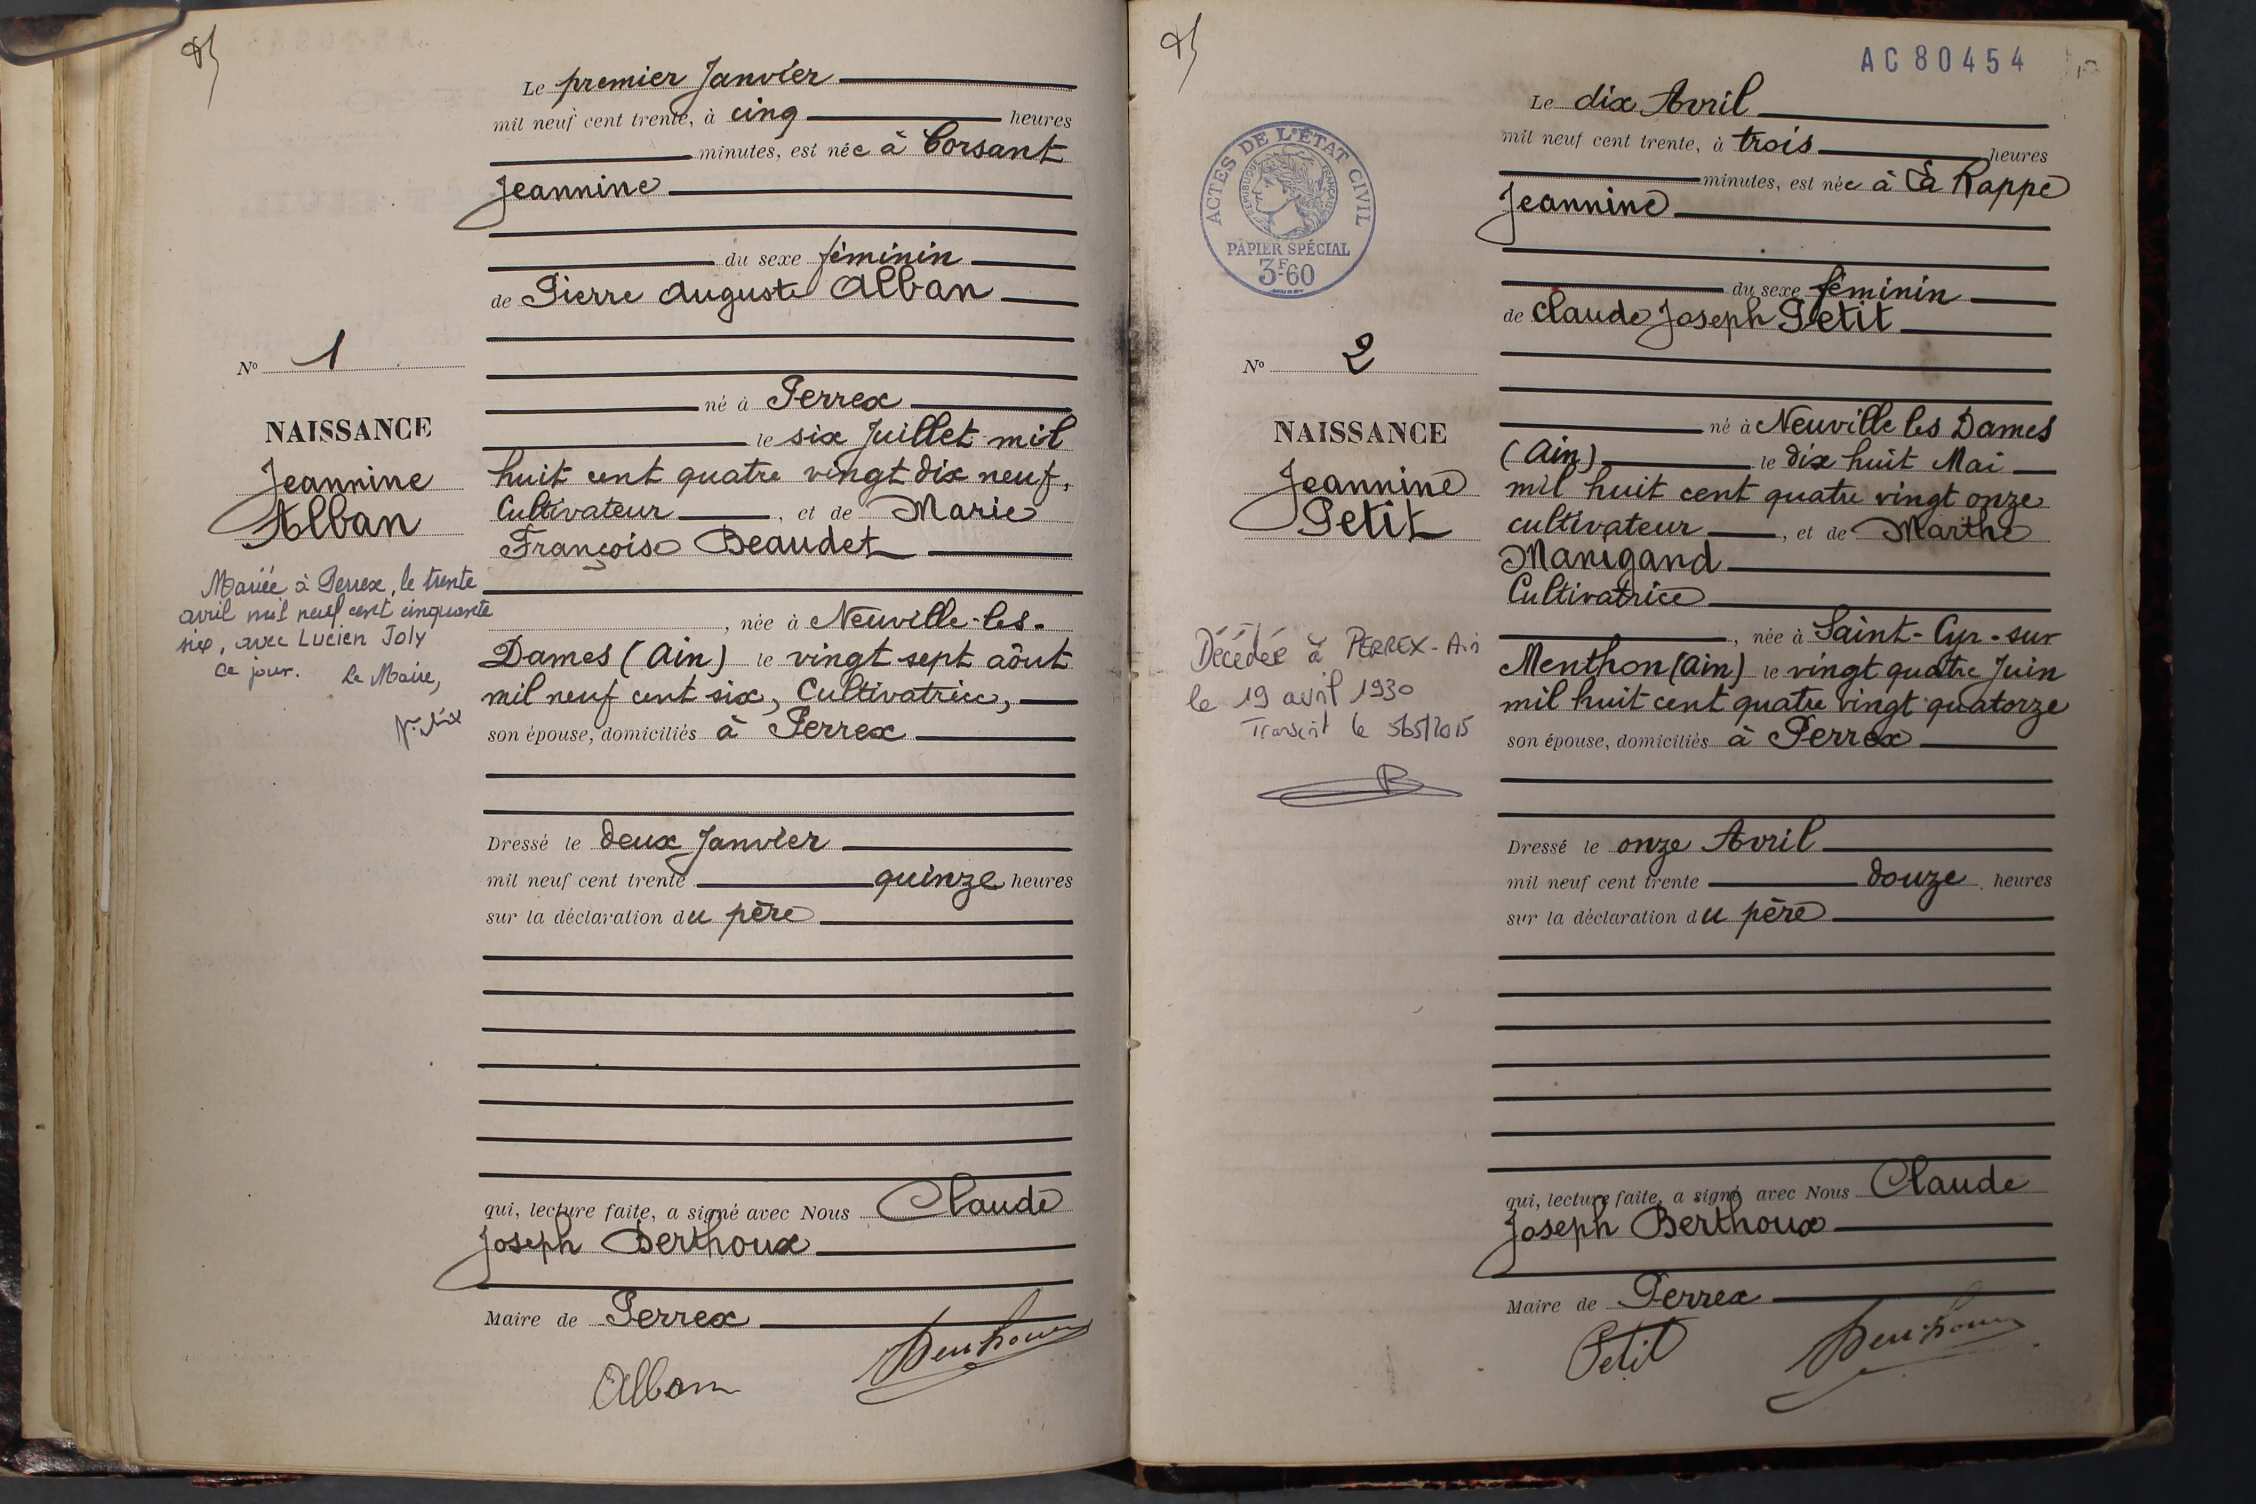 Le premier Janvier
mil neuf cent trente, à cinq heures
minutes, est née à Corsant
Jeannine
du sexe féminin
de Pierre Auguste Alban
né à Perrex
le six Juillet mil
huit cent quatre vingt dix neuf,
Cultivateur, et de Marie
Françoise Beaudet
, née à Neuville-les-
Dames (Ain) le vingt sept aôut
mil neuf cent six, Cultivatrice,
son épouse, domiciliés à Perrex
Dressé le deux Janvier
mil neuf cent trente quinze heures
sur la déclaration du père
qui, lecture faite, a signé avec Nous Claude
Joseph Berthoux
Maire de Perrex
Alban
Berthoux
No 1
NAISSANCE
Jeannine
Alban
Mariée à Perrex, le trente
avril mil neuf cent cinquante
six, avec Lucien Joly
Ce jour. Le Maire,
AC 80454
Le dix Avril
mil neuf cent trente, à trois heures
minutes, est née à La Rappe
Jeannine
du sexe féminin
de Claude Joseph Petit
né à Neuville les Dames
(Ain) le dix huit Mai
mil huit cent quatre vingt onze
cultivateur, et de Marthe
Manigand
Cultivatrice
, née à Saint-Cyr-sur
Menthon (Ain) le vingt quatre Juin
mil huit cent quatre vingt quatorze
son épouse, domiciliés à Perrex
Dressé le onze Avril
mil neuf cent trente douze heures
sur la déclaration du père
qui, lecture faite, a signé avec Nous Claude
Joseph Berthoux
Maire de Perrex
Petit
Berthoux
ACTES DE L'ÉTAT CIVIL
RÉPUBLIQUE FRANÇAISE
PAPIER SPÉCIAL
3F60
No 2
NAISSANCE
Jeannine
Petit
Décédée à PERREX - Ain
le 19 avril 1930
Transcrit le